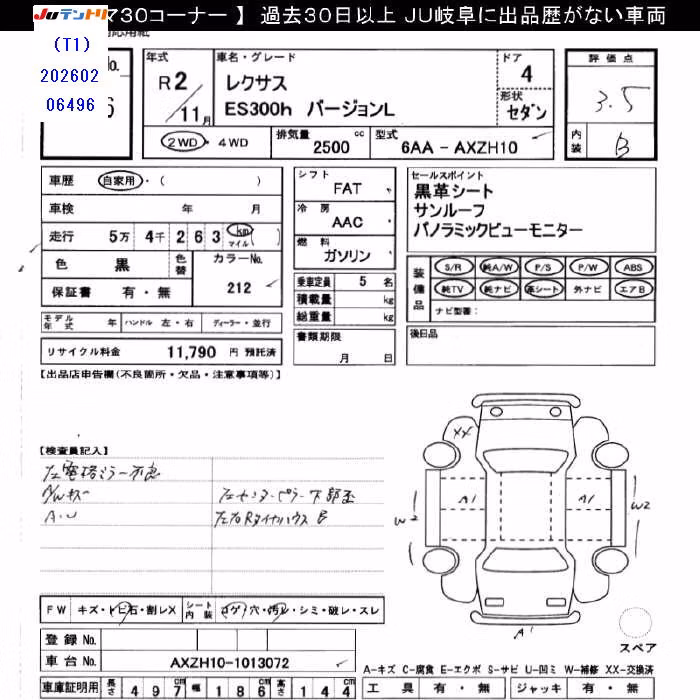 JUテントリ 730コーナー 】 過去30日以上 JU岐阜に出品歴がない車両
(T1)
202602
06496
No.
年式 R2/11月
車名・グレード
レクサス
ES300h バージョンL
ドア 4
形状 セダン
評価点 3.5
内装 B
2WD・4WD
排気量 2500 cc
型式 6AA - AXZH10
車歴 自家用・( )
車検 年 月
走行 5万 4千 2 6 3 km マイル ( )
色 黒 色替 カラーNo. 212
保証書 有・無
モデル年式 年 ハンドル 左・右 ディーラー・並行
リサイクル料金 11,790 円 預託済
シフト FAT
冷房 AAC
燃料 ガソリン
乗車定員 5 名
積載量 kg
総重量 kg
書類期限
月 日
セールスポイント
黒革シート
サンルーフ
パノラミックビューモニター
装備品
S/R 純A/W P/S P/W ABS
純TV 純ナビ 革シート 外ナビ エアB
ナビ型番:
後日品
【出品店申告欄(不良箇所・欠品・注意事項等)】
【検査員記入】
左電格ミラー不良
A/Wキズ
A・U
左センターピラー下部歪
左右Rタイヤハウス
XX
A1
A1
W2
W2
A1
FW キズ・トビ石・割レX シート内装 コゲ・穴・汚レ・シミ・破レ・スレ
登録 No.
車台 No. AXZH10-1013072
車庫証明用 長さ 497cm 幅 186cm 高さ 144cm
スペア
A-キズ C-腐食 E-エクボ S-サビ U-凹ミ W-補修 XX-交換済
工具 有・無 ジャッキ 有・無